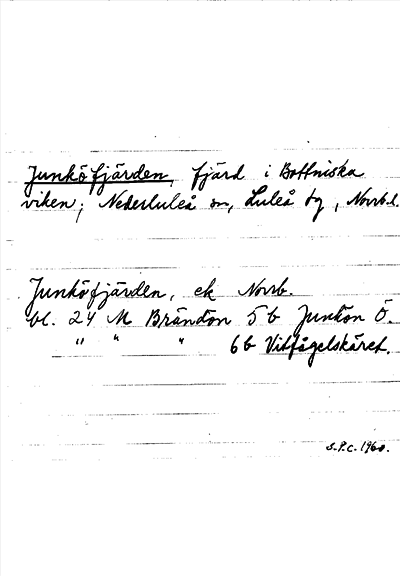 Junköfjärden, fjärd i Bottniska
viken; Nederluleå sn, Luleå tg, Norrb.l.
Junköfjärden, ek Norrb.
bl. 24 M Brändön 5b Junkön Ö.
" " " 6b Vitfågelskäret.
S.P.C. 1960.